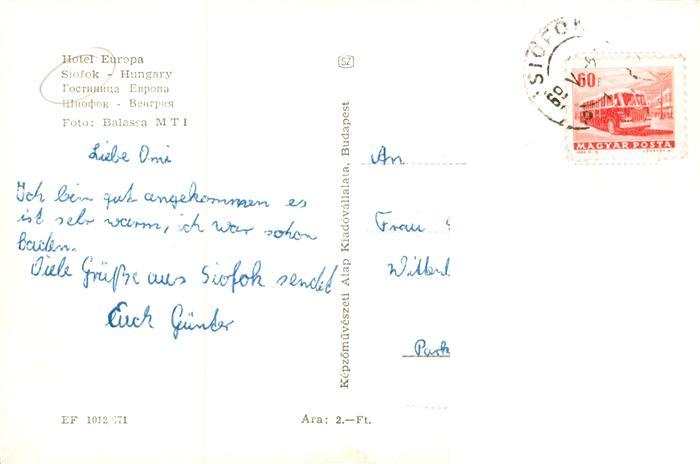 Hotel Europa
Siofok - Hungary
Гостиница Европа
Шиофок - Венгрия
Foto: Balassa MTI
Liebe Omi
Ich bin gut angekommen es
ist sehr warm, ich war schon
baden.
Viele Grüße aus Siofok sendet
Euch Günter
EF 1012 671
Ara: 2.—Ft.
Képzőművészeti Alap Kiadóvállalata, Budapest
SZ
SIÓFOK
60f
MAGYAR POSTA
An
Frau
Park